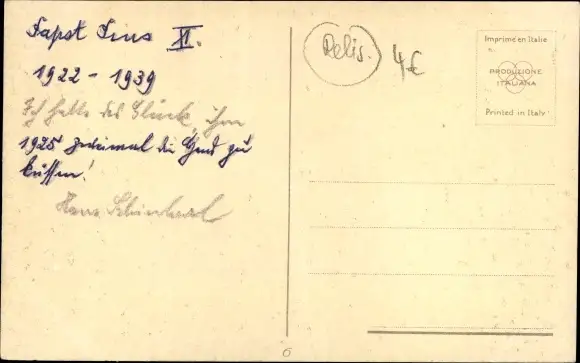 Papst Pius XI.
1922 - 1939
Ich hatte das Glück, ihm
1925 zweimal die Hand zu
küssen!
Hans
Relis.
4 €
Imprimé en Italie
PRODUZIONE
ITALIANA
Printed in Italy
6